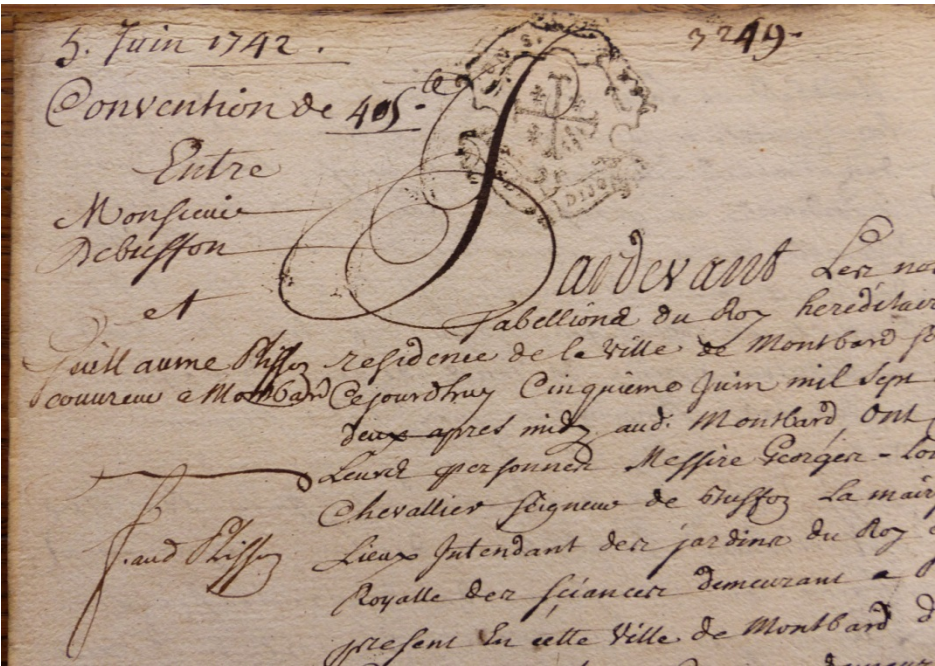 5. Juin 1742.
3249.
Convention de 405.lt
Entre
Monsieur
Debuffon
et
Guillaume Plisson
couvreur a Montbard
DIJON
Pardevant Les no
Tabellions du Roy hereditair
residence de la Ville de Montbard so
Cejourdhuy Cinquieme Juin mil sept
deux apres midy aud. Montbard, ont
Leurs personnes Messire Georges-lou
Chevallier seigneur de Buffon La mair
Lieux Intendant des jardins du Roy
Royalle des sciances demeurant a
present En cette Ville de Montbard d
p. aud Plisson